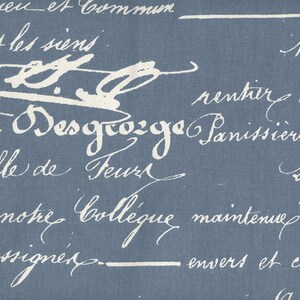 et Commun
les siens
rentier
Desgeorge Panissièr
lle de Feurs
notre Collégue maintenue
ssignés envers et c